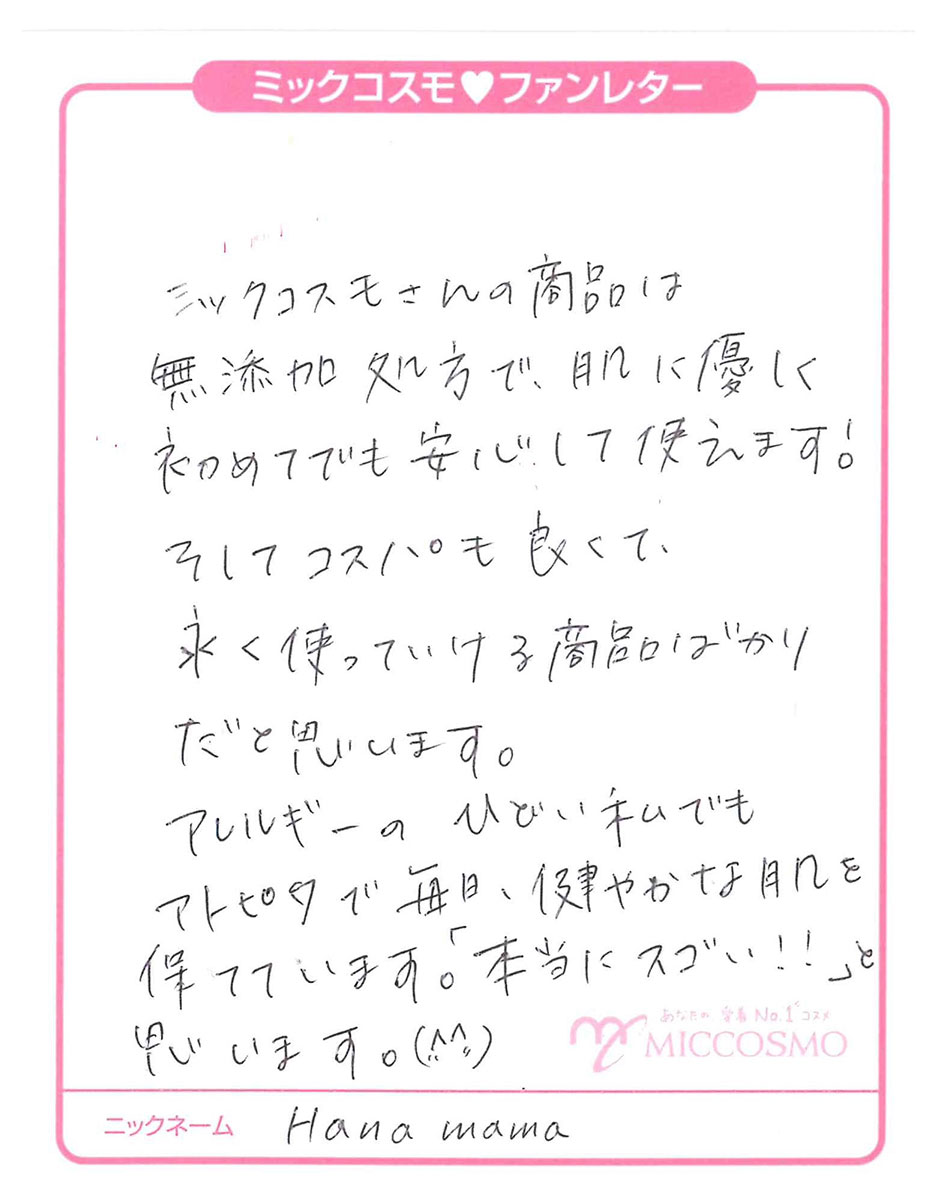 ミックコスモ♥ファンレター
ミックコスモさんの商品は
無添加処方で、肌に優しく
初めてでも安心して使えます!
そしてコスパも良くて、
永く使っていける商品ばかり
だと思います。
アレルギーのひどい私でも
アトピタで毎日、健やかな肌を
保てています。「本当にスゴい!!」と
思います。(^^)
あなたの愛着No.1コスメ
MICCOSMO
ニックネーム Hana mama